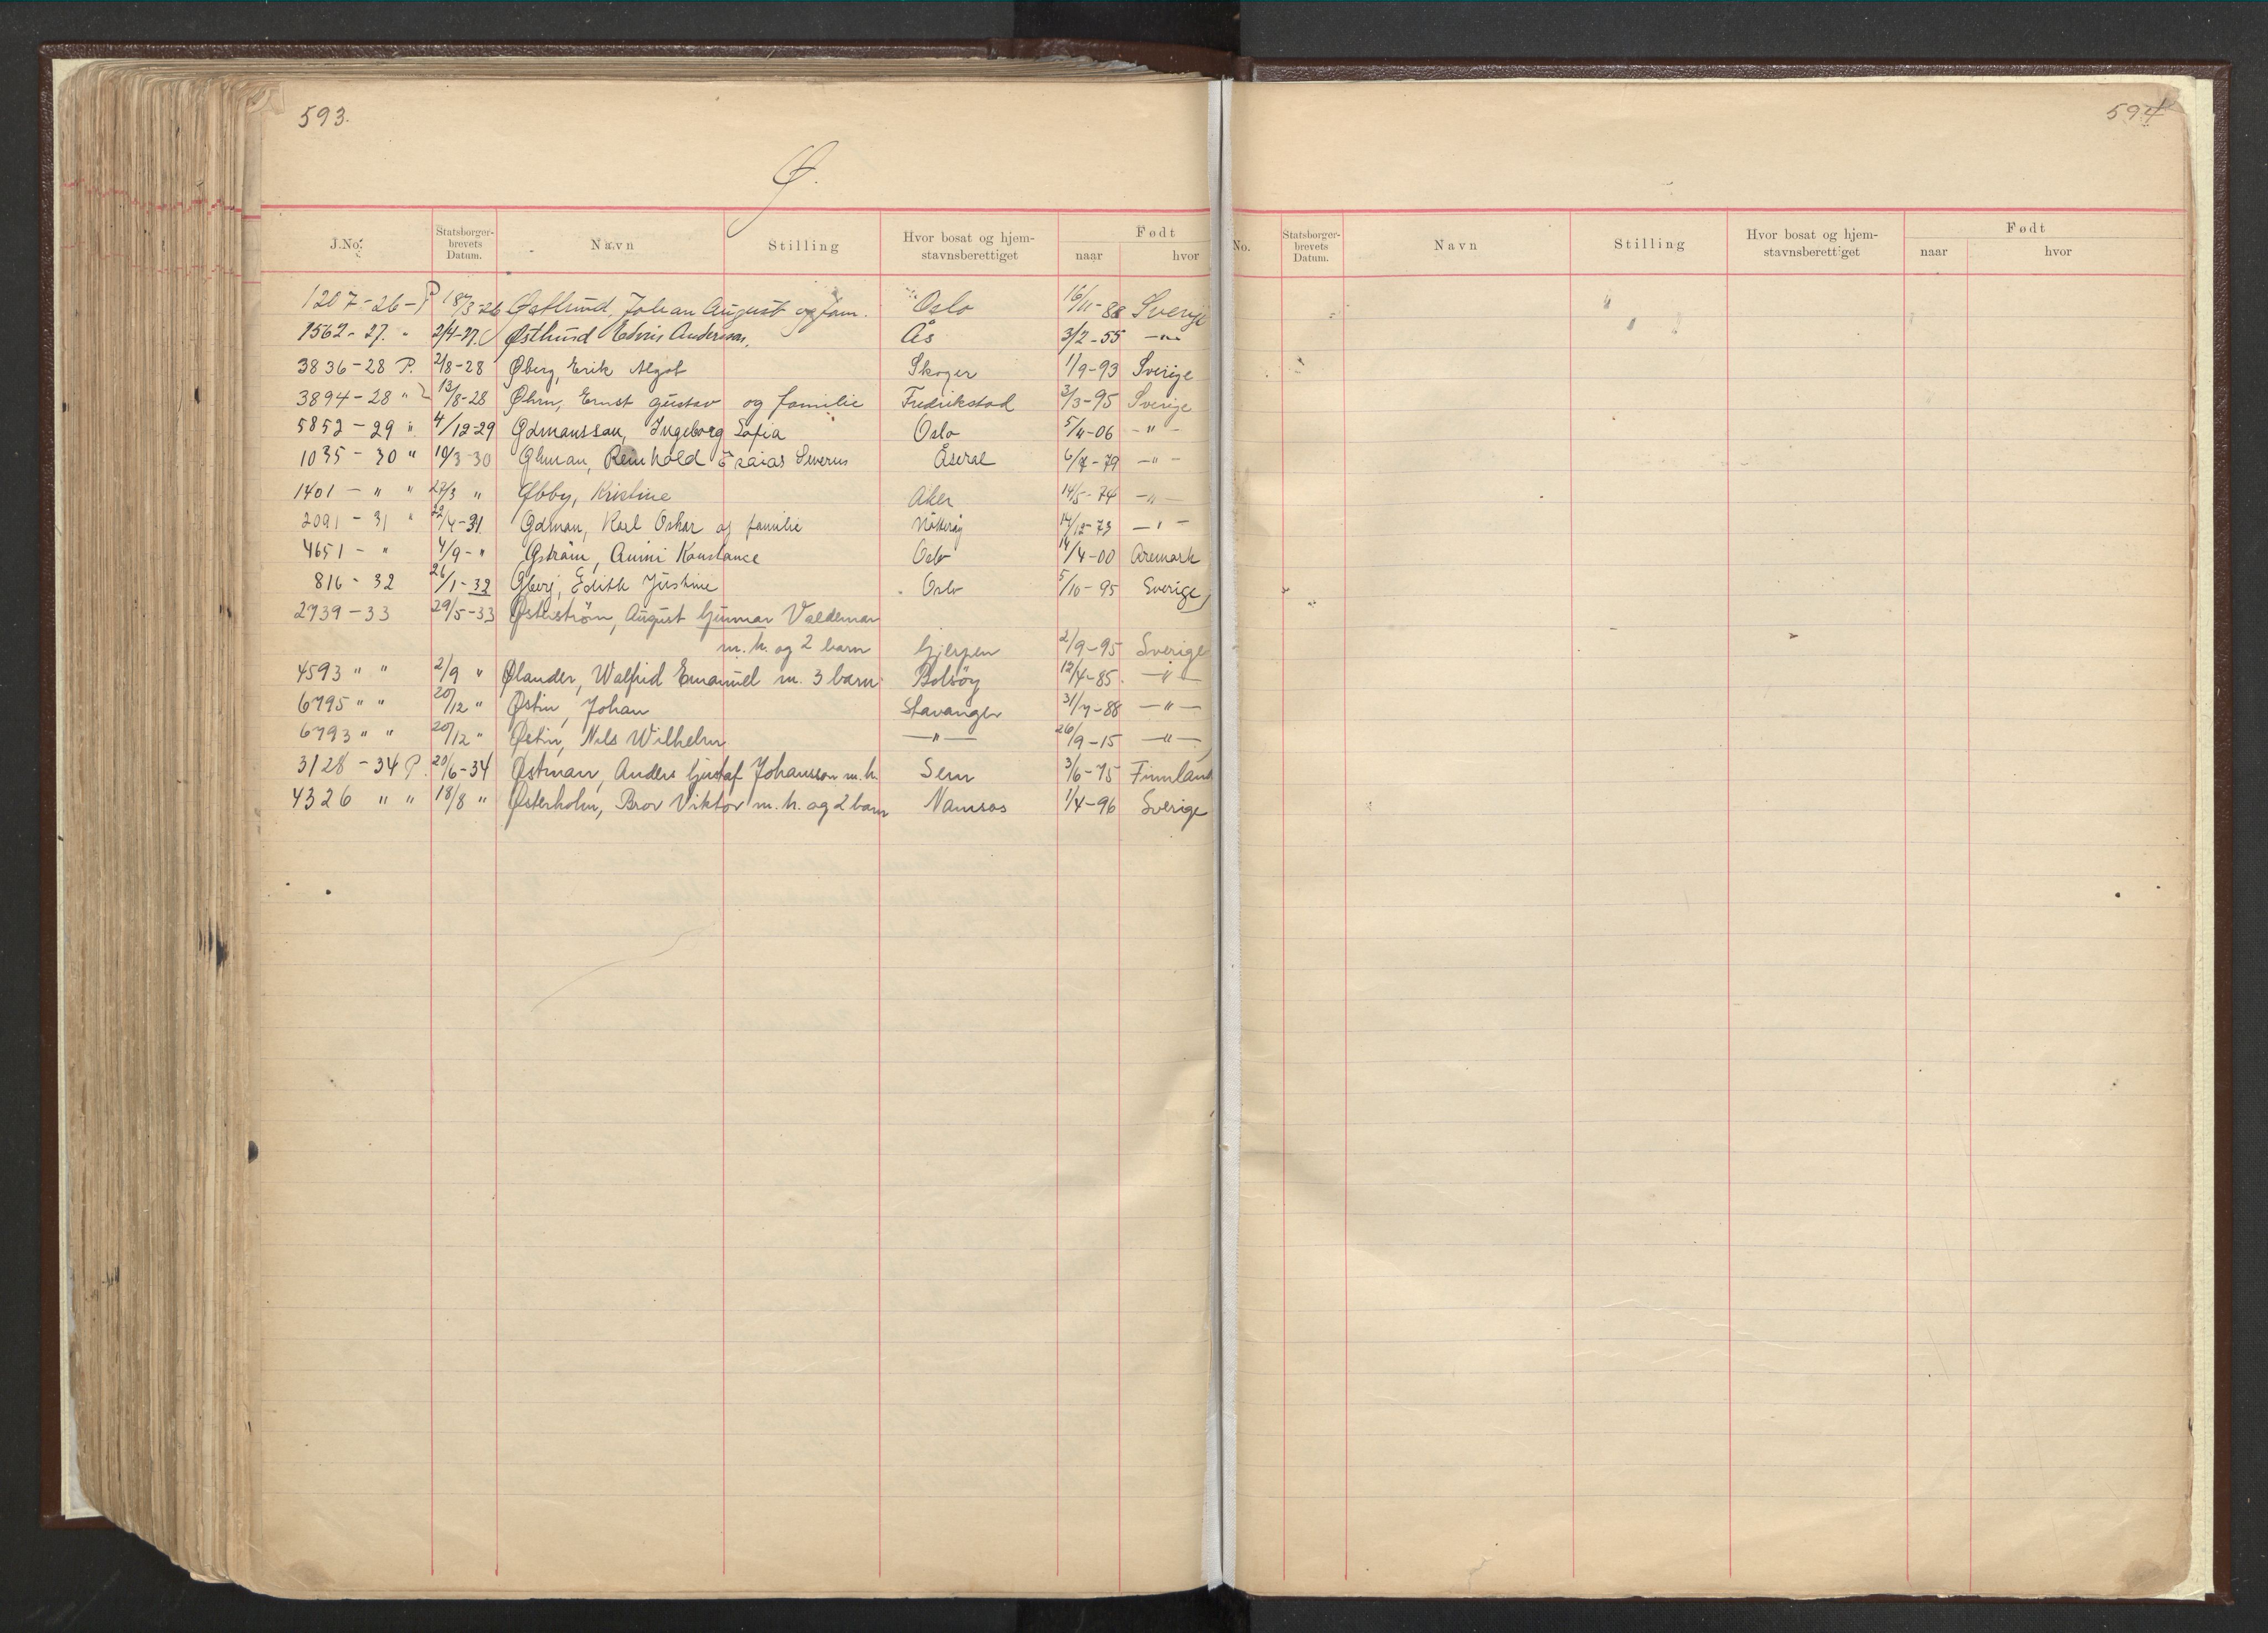 593.
Ø.
J.No. Statsborger-brevets Datum. Navn Stilling Hvor bosat og hjem-stavnsberettiget Født naar hvor
1207-26-P 18/3-26 Østlund, Johan August og fam. Oslo 16/11-88 Sverige
1562-27. " 2/4-27. Østlund Edvin Anderson. Ås 3/2-55 -"-
3836-28 P. 2/8-28 Øberg, Erik Algot Skoger 1/9-93 Sverige
3894-28 " 13/8-28 Øhrn, Ernst Gustav og familie Fredrikstad 3/3-95 Sverige
5852-29 " 4/12-29 Ødmanssan, Ingeborg Sofia Oslo 5/4-06 -"-
1035-30 " 10/3-30 Øhman, Reinhold Esaias Severus Åseral 6/7-79 -"-
1401-" " 27/3 " Øbby, Kristine Aker 14/5-74 -"-
2091-31 " 22/4-31 Ødman, Karl Oskar og familie Nøtterøy 14/12-73 -"-
4651-" 4/9-" Øström, Anni Konstance Oslo 14/4-00 Aremark
816-32 26/1-32 Øberg, Edith Justine Oslo 5/10-95 Sverige
2739-33 29/5-33 Österström, August Gunnar Valdemar
m. h. og 2 barn Gjerpen 2/9-95 Sverige
4593 " " 2/9 " Ølander, Walfrid Emanuel m. 3 barn Bolsöy 12/4-85. -"-
6795 " " 20/12 " Østin, Johan Stavanger 31/7-88 -"-
6793 " " 20/12 " Østin, Nils Wilhelm -"- 26/9-15 -"-
3128-34 P. 20/6-34 Østman, Anders Gustaf Johansson m. h. Sem 3/6-75 Finnland
4326 " " 18/8 " Østerholm, Bror Viktor m. h. og 2 barn Namsos 1/4-96 Sverige
594
No. Statsborger-brevets Datum. Navn Stilling Hvor bosat og hjem-stavnsberettiget Født naar hvor